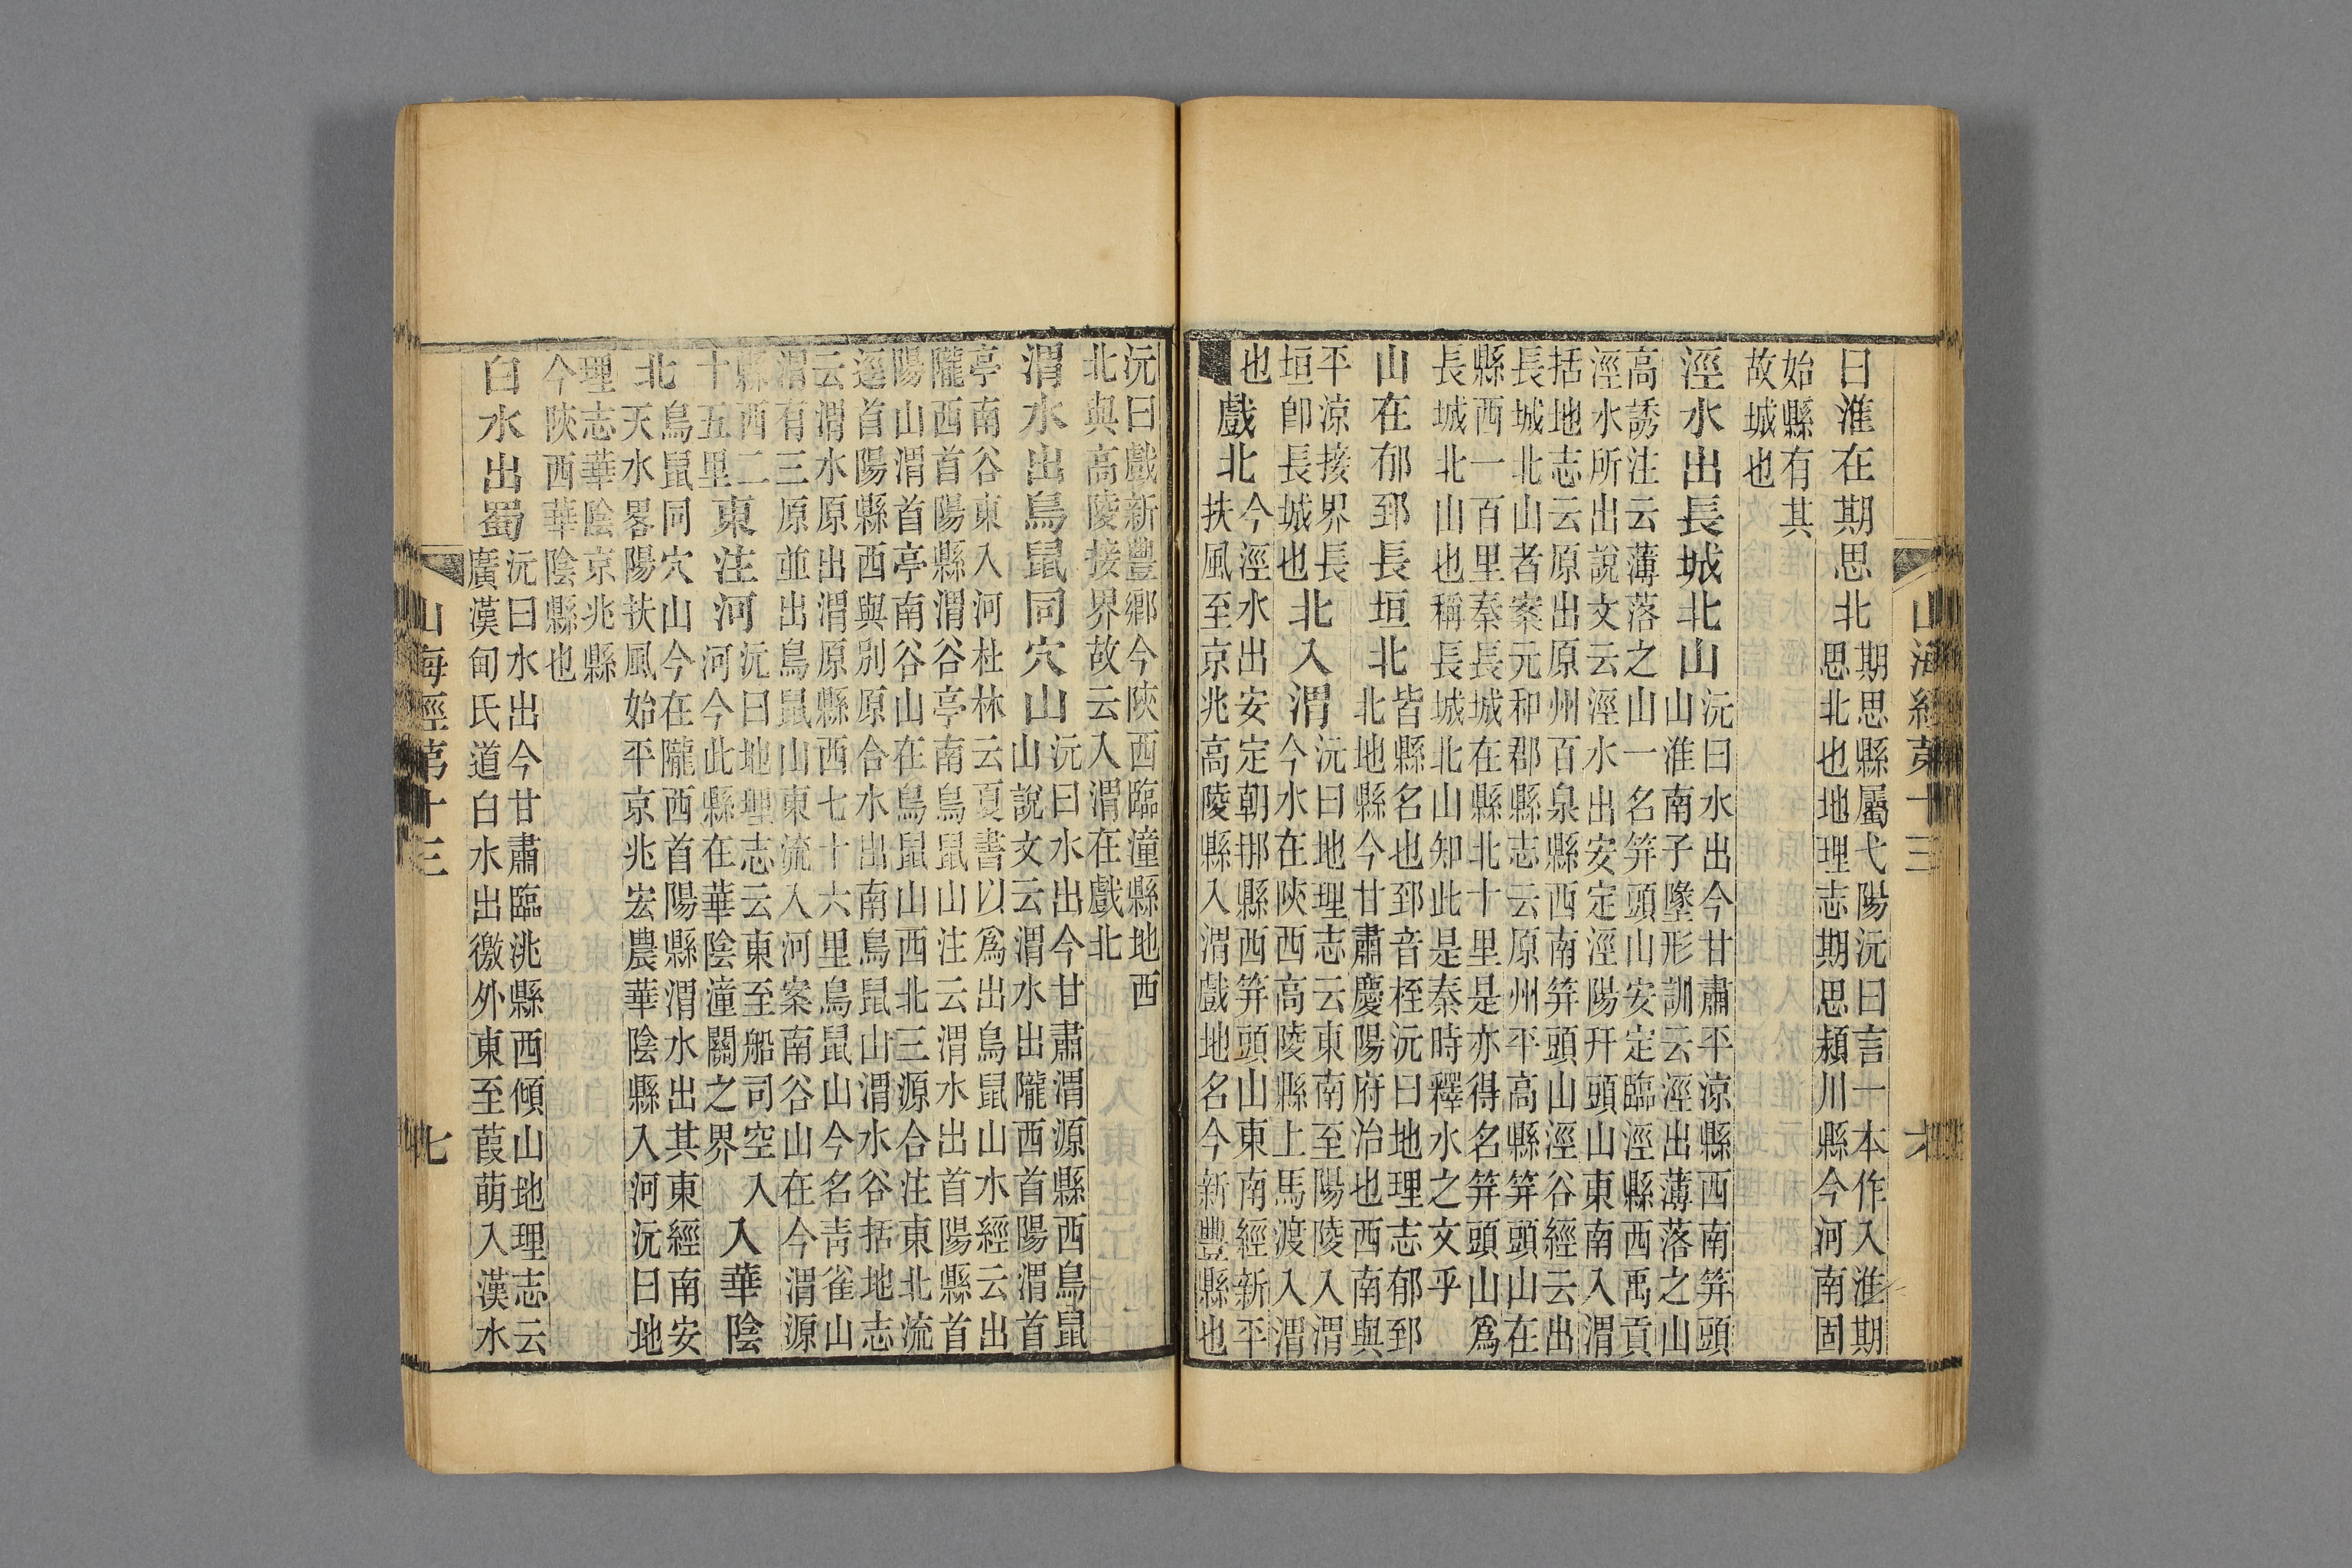 山海經第十三
曰淮在期思北
期思縣屬弋陽沅曰言一本作入淮期
思北也地理志期思潁川縣今河南固
始縣有其
故城也
涇水出長城北山
沅曰水出今甘肅平涼縣西南笄頭
山淮南子墬形訓云涇出薄落之山
高誘注云薄落之山一名笄頭山安定臨涇縣西禹貢
涇水所出說文云涇水出安定涇陽幵頭山東南入渭
括地志云原出原州百泉縣西南笄頭山涇谷經云出
長城北山者案元和郡縣志云原州平高縣笄頭山在
縣西一百里秦長城在縣北十里是亦得名笄頭山爲
長城北山也稱長城北山知此是秦時釋水之文乎
山在郁郅長垣北
皆縣名也郅音桎沅曰地理志郁郅
北地縣今甘肅慶陽府治也西南與
平涼接界長
垣卽長城也
北入渭
沅曰地理志云東南至陽陵入渭
今水在陝西高陵縣上馬渡入渭
也
戲北
今涇水出安定朝那縣西笄頭山東南經新平
扶風至京兆高陵縣入渭戲地名今新豐縣也
沅曰戲新豐鄉今陝西臨潼縣地西
北與高陵接界故云入渭在戲北
渭水出鳥鼠同穴山
沅曰水出今甘肅渭源縣西鳥鼠
山說文云渭水出隴西首陽渭首
亭南谷東入河杜林云夏書以爲出鳥鼠山水經云出
隴西首陽縣渭谷亭南鳥鼠山注云渭水出首陽縣首
陽山渭首亭南谷山在鳥鼠山西北三源合注東北流
逕首陽縣西與別原合水出南鳥鼠山渭水谷括地志
云渭水原出渭原縣西七十六里鳥鼠山今名靑雀山
渭有三原並出鳥鼠山東流入河案南谷山在今渭源
縣西二
十五里
東注河
沅曰地理志云東至船司空入
河今此縣在華陰潼關之界
入華陰
北
鳥鼠同穴山今在隴西首陽縣渭水出其東經南安
天水畧陽扶風始平京兆宏農華陰縣入河沅曰地
理志華陰京兆縣
今陝西華陰縣也
白水出蜀
沅曰水出今甘肅臨洮縣西傾山地理志云
廣漢甸氏道白水出徼外東至葭萌入漢水
山海經第十三
七